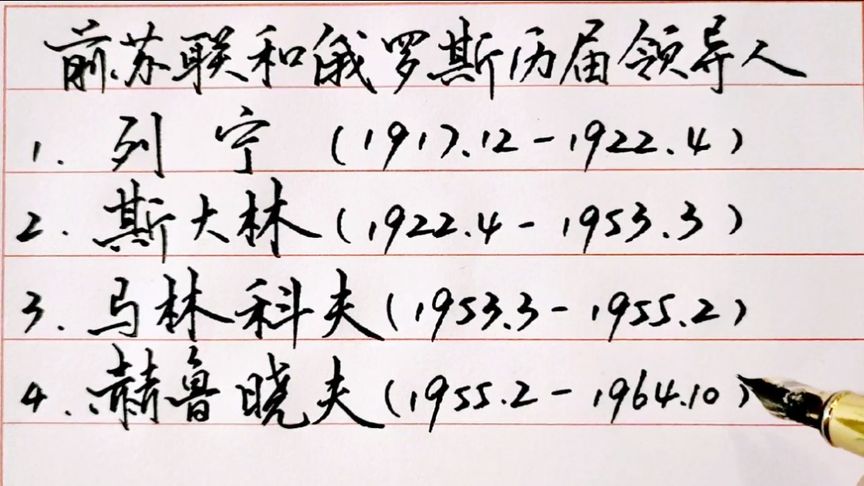 前苏联和俄罗斯历届领导人
1. 列宁 (1917.12-1922.4)
2. 斯大林 (1922.4-1953.3)
3. 马林科夫 (1953.3-1955.2)
4. 赫鲁晓夫 (1955.2-1964.10)